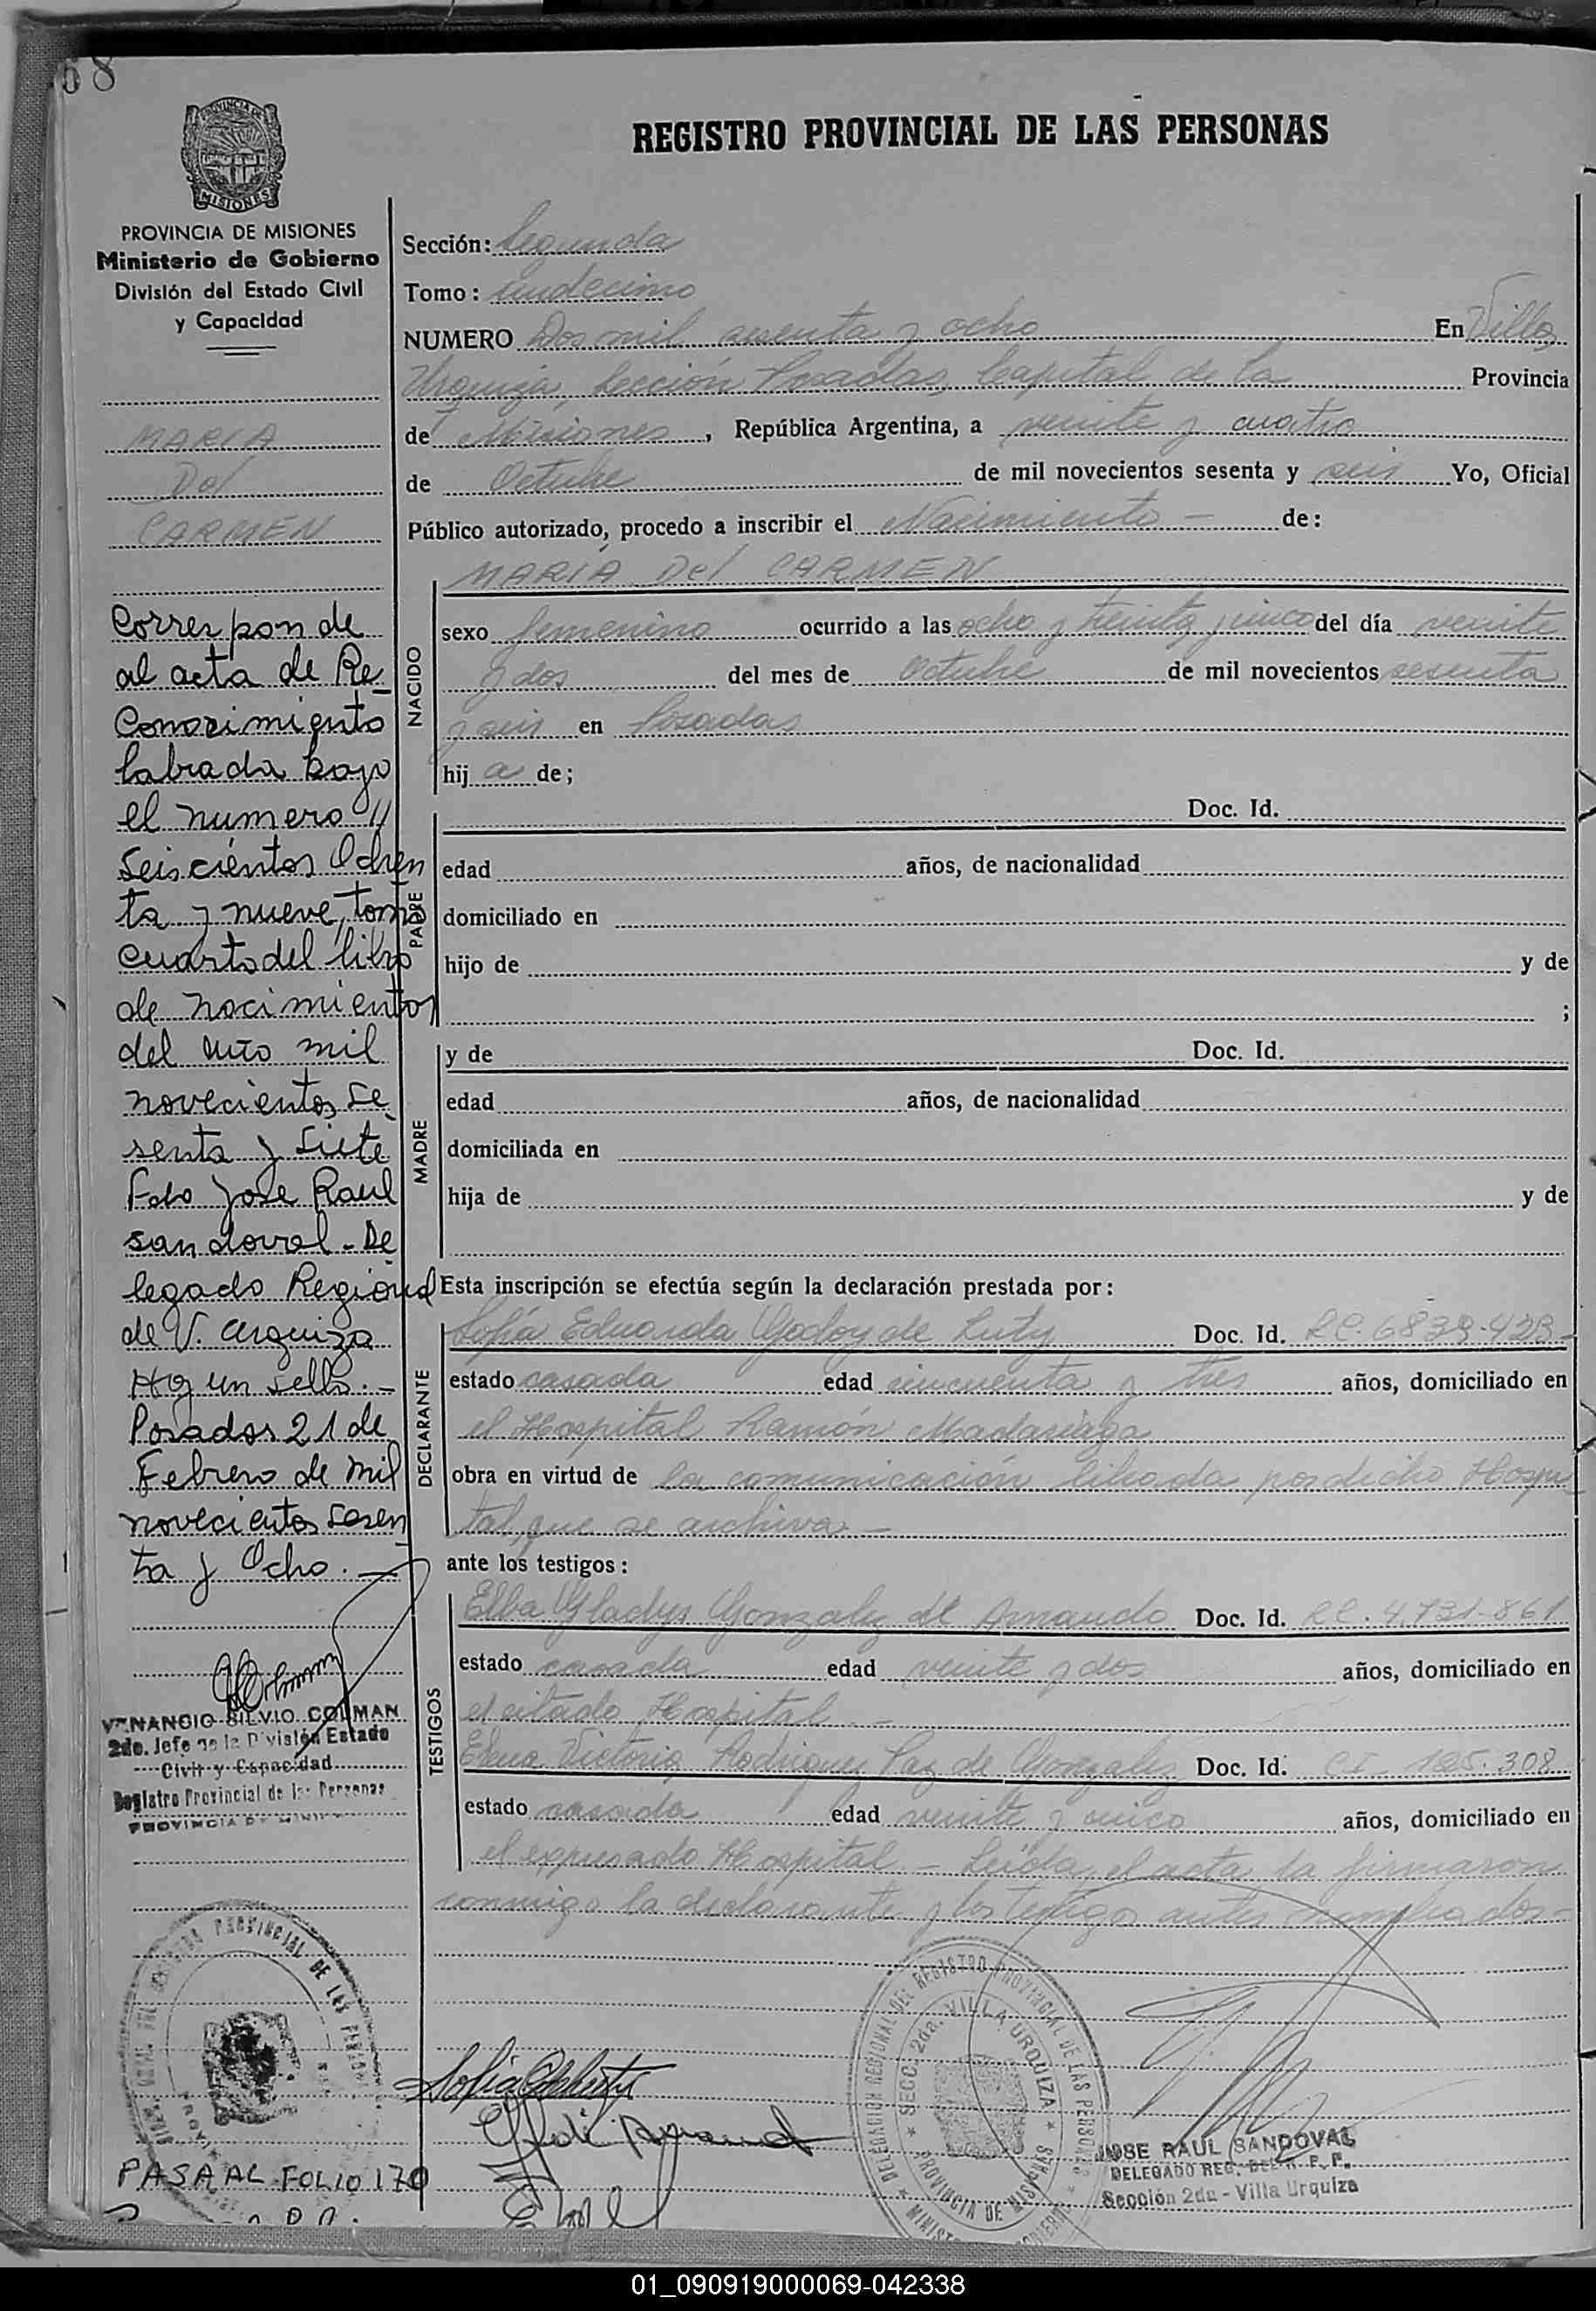 68
REGISTRO PROVINCIAL DE LAS PERSONAS
PROVINCIA DE
MISIONES
PROVINCIA DE MISIONES
Ministerio de Gobierno
División del Estado Civil
y Capacidad
MARIA
Del
CARMEN
Correspon de
al acta de Re
Conocimiento
labrada bajo
el numero
Seiscientos Ochen
ta y nueve, tomo
cuarto del libro
de nacimientos
del año mil
novecientos se
senta y Siete
Fdo Jose Raul
sandoval - De
legado Regional
de V. Urquiza
Hay un sello. -
Posadas 21 de
Febrero de mil
novecientos sesen
ta y Ocho. -
VENANCIO SILVIO COLMAN
2do. Jefe de la División Estado
Civil y Capacidad
Registro Provincial de las Personas
PROVINCIA DE
PASA AL FOLIO 170
Sección: Segunda
Tomo: Undecimo
NUMERO Dos mil sesenta y ocho En Villa
Urquiza, Sección Posadas, Capital de la Provincia
de Misiones, República Argentina, a veinte y cuatro
de Octubre de mil novecientos sesenta y seis Yo, Oficial
Público autorizado, procedo a inscribir el Nacimiento - de:
MARIA Del CARMEN
NACIDO
sexo femenino ocurrido a las ocho y treinta y cinco del día veinte
y dos del mes de Octubre de mil novecientos sesenta
y seis en Posadas
hij a de;
PADRE
Doc. Id.
edad años, de nacionalidad
domiciliado en
hijo de y de
;
MADRE
y de Doc. Id.
edad años, de nacionalidad
domiciliada en
hija de y de
Esta inscripción se efectúa según la declaración prestada por:
DECLARANTE
Sofia Eduarda Godoy de Luty Doc. Id.
estado casada edad cincuenta y tres años, domiciliado en
el Hospital Ramón Madariaga
obra en virtud de la comunicación librada por dicho Hospi
tal, que se archiva. -
ante los testigos:
TESTIGOS
Elba Gladys Gonzalez de Doc. Id.
estado casada edad veinte y dos años, domiciliado en
el citado Hospital -
Victoria Rodriguez Paz de Gonzalez Doc. Id. CI 125.308
estado casada edad veinte y cinco años, domiciliado en
el expresado Hospital. - Leída el acta la firmaron
conmigo la declarante y los testigos antes nombrados -
DELEGACION REGIONAL DEL REGISTRO PROVINCIAL DE LAS PERSONAS
SECC. 2da. VILLA URQUIZA
PROVINCIA DE MISIONES
JOSE RAUL SANDOVAL
DELEGADO REG. DEL R. P. P.
Sección 2da - Villa Urquiza
01_090919000069-042338